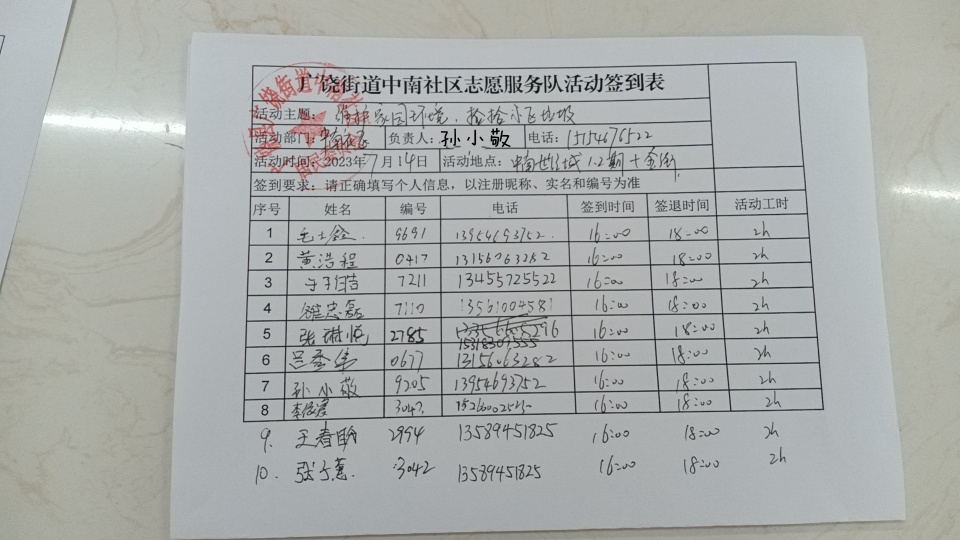 广饶街道中南社区志愿服务队活动签到表
活动主题：维护家园环境，捡拾小区垃圾
活动部门：中南社区 负责人：孙小敬 电话：15154676522
活动时间：2023年7月14日 活动地点：中南世纪城1.2期十金街
签到要求：请正确填写个人信息，以注册昵称、实名和编号为准
序号 姓名 编号 电话 签到时间 签退时间 活动工时
1 毛士銓 9691 13954693752 16:00 18:00 2h
2 黄浩程 0417 13156063282 16:00 18:00 2h
3 7211 13455725522 16:00 18:00 2h
4 忠磊 7110 13561004581 16:00 18:00 2h
5 张琳悦 2785 15318307555 16:00 18:00 2h
6 吕奎伟 0677 13156063282 16:00 18:00 2h
7 孙小敬 9205 13954693752 16:00 18:00 2h
8 李俊 3047 16:00 18:00 2h
9. 王春晗 2994 13589451825 16:00 18:00 2h
10. 张子蕙 3042 13589451825 16:00 18:00 2h